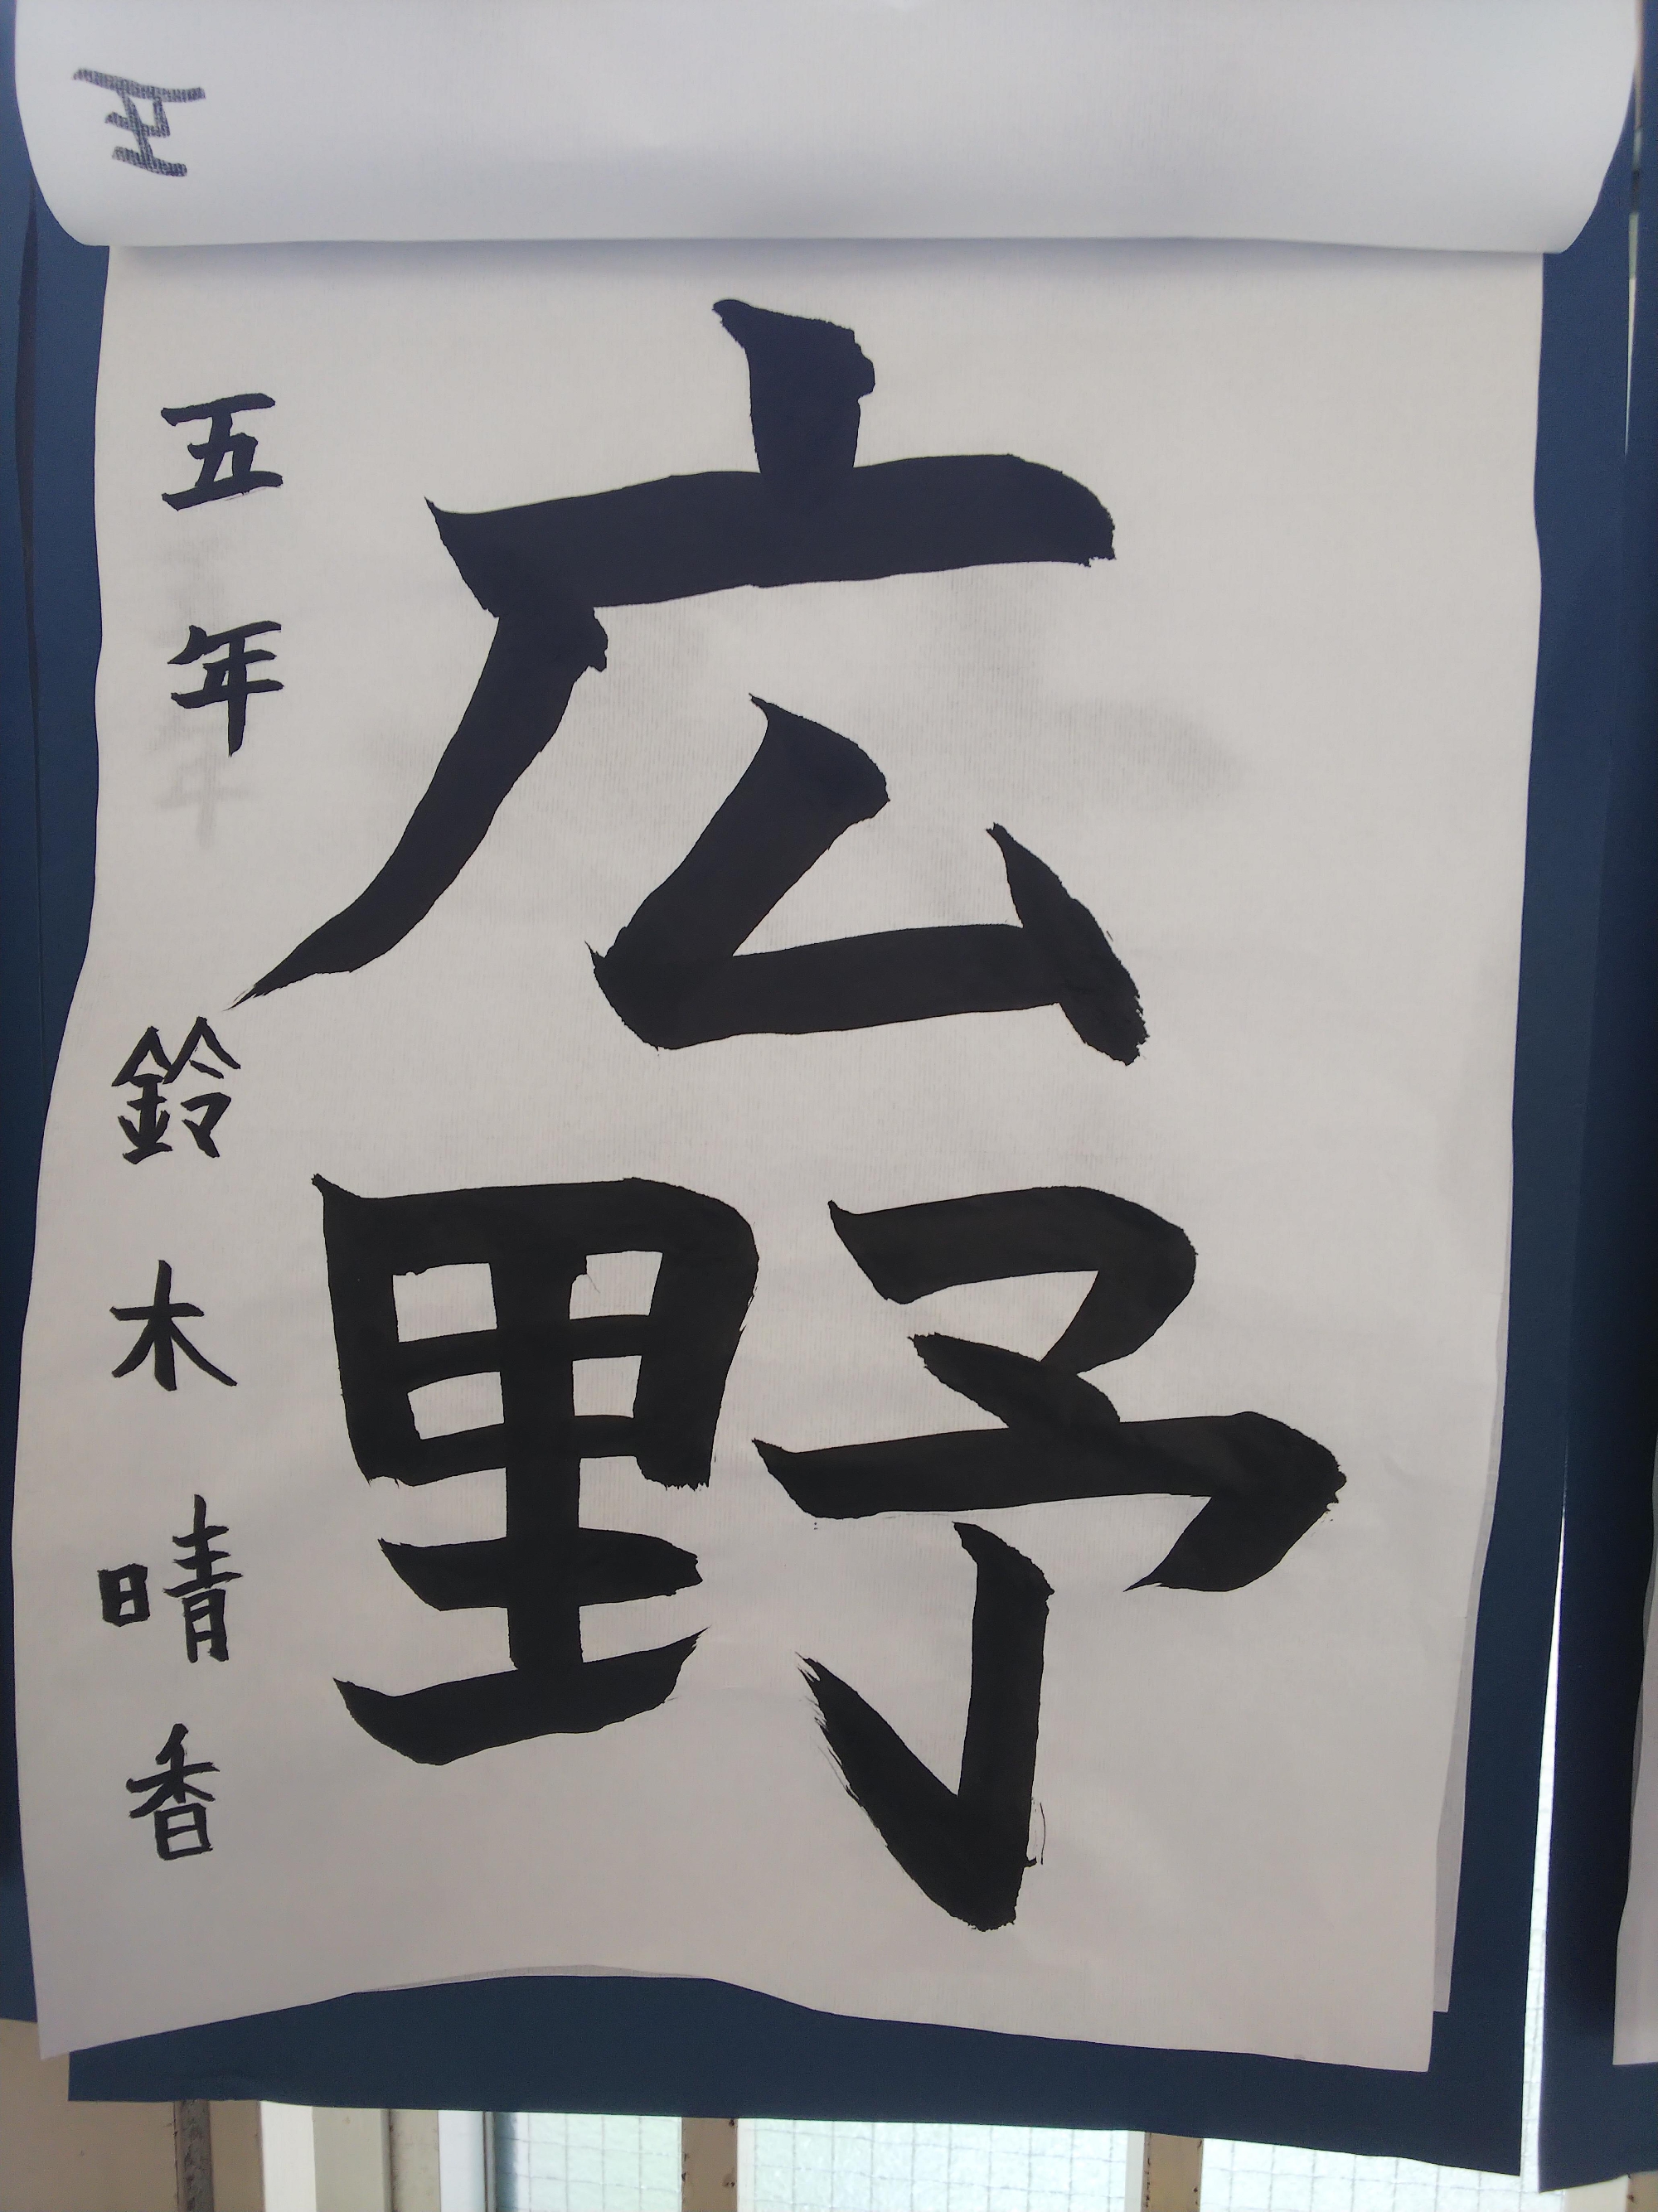 広野
五年 鈴木晴香
五